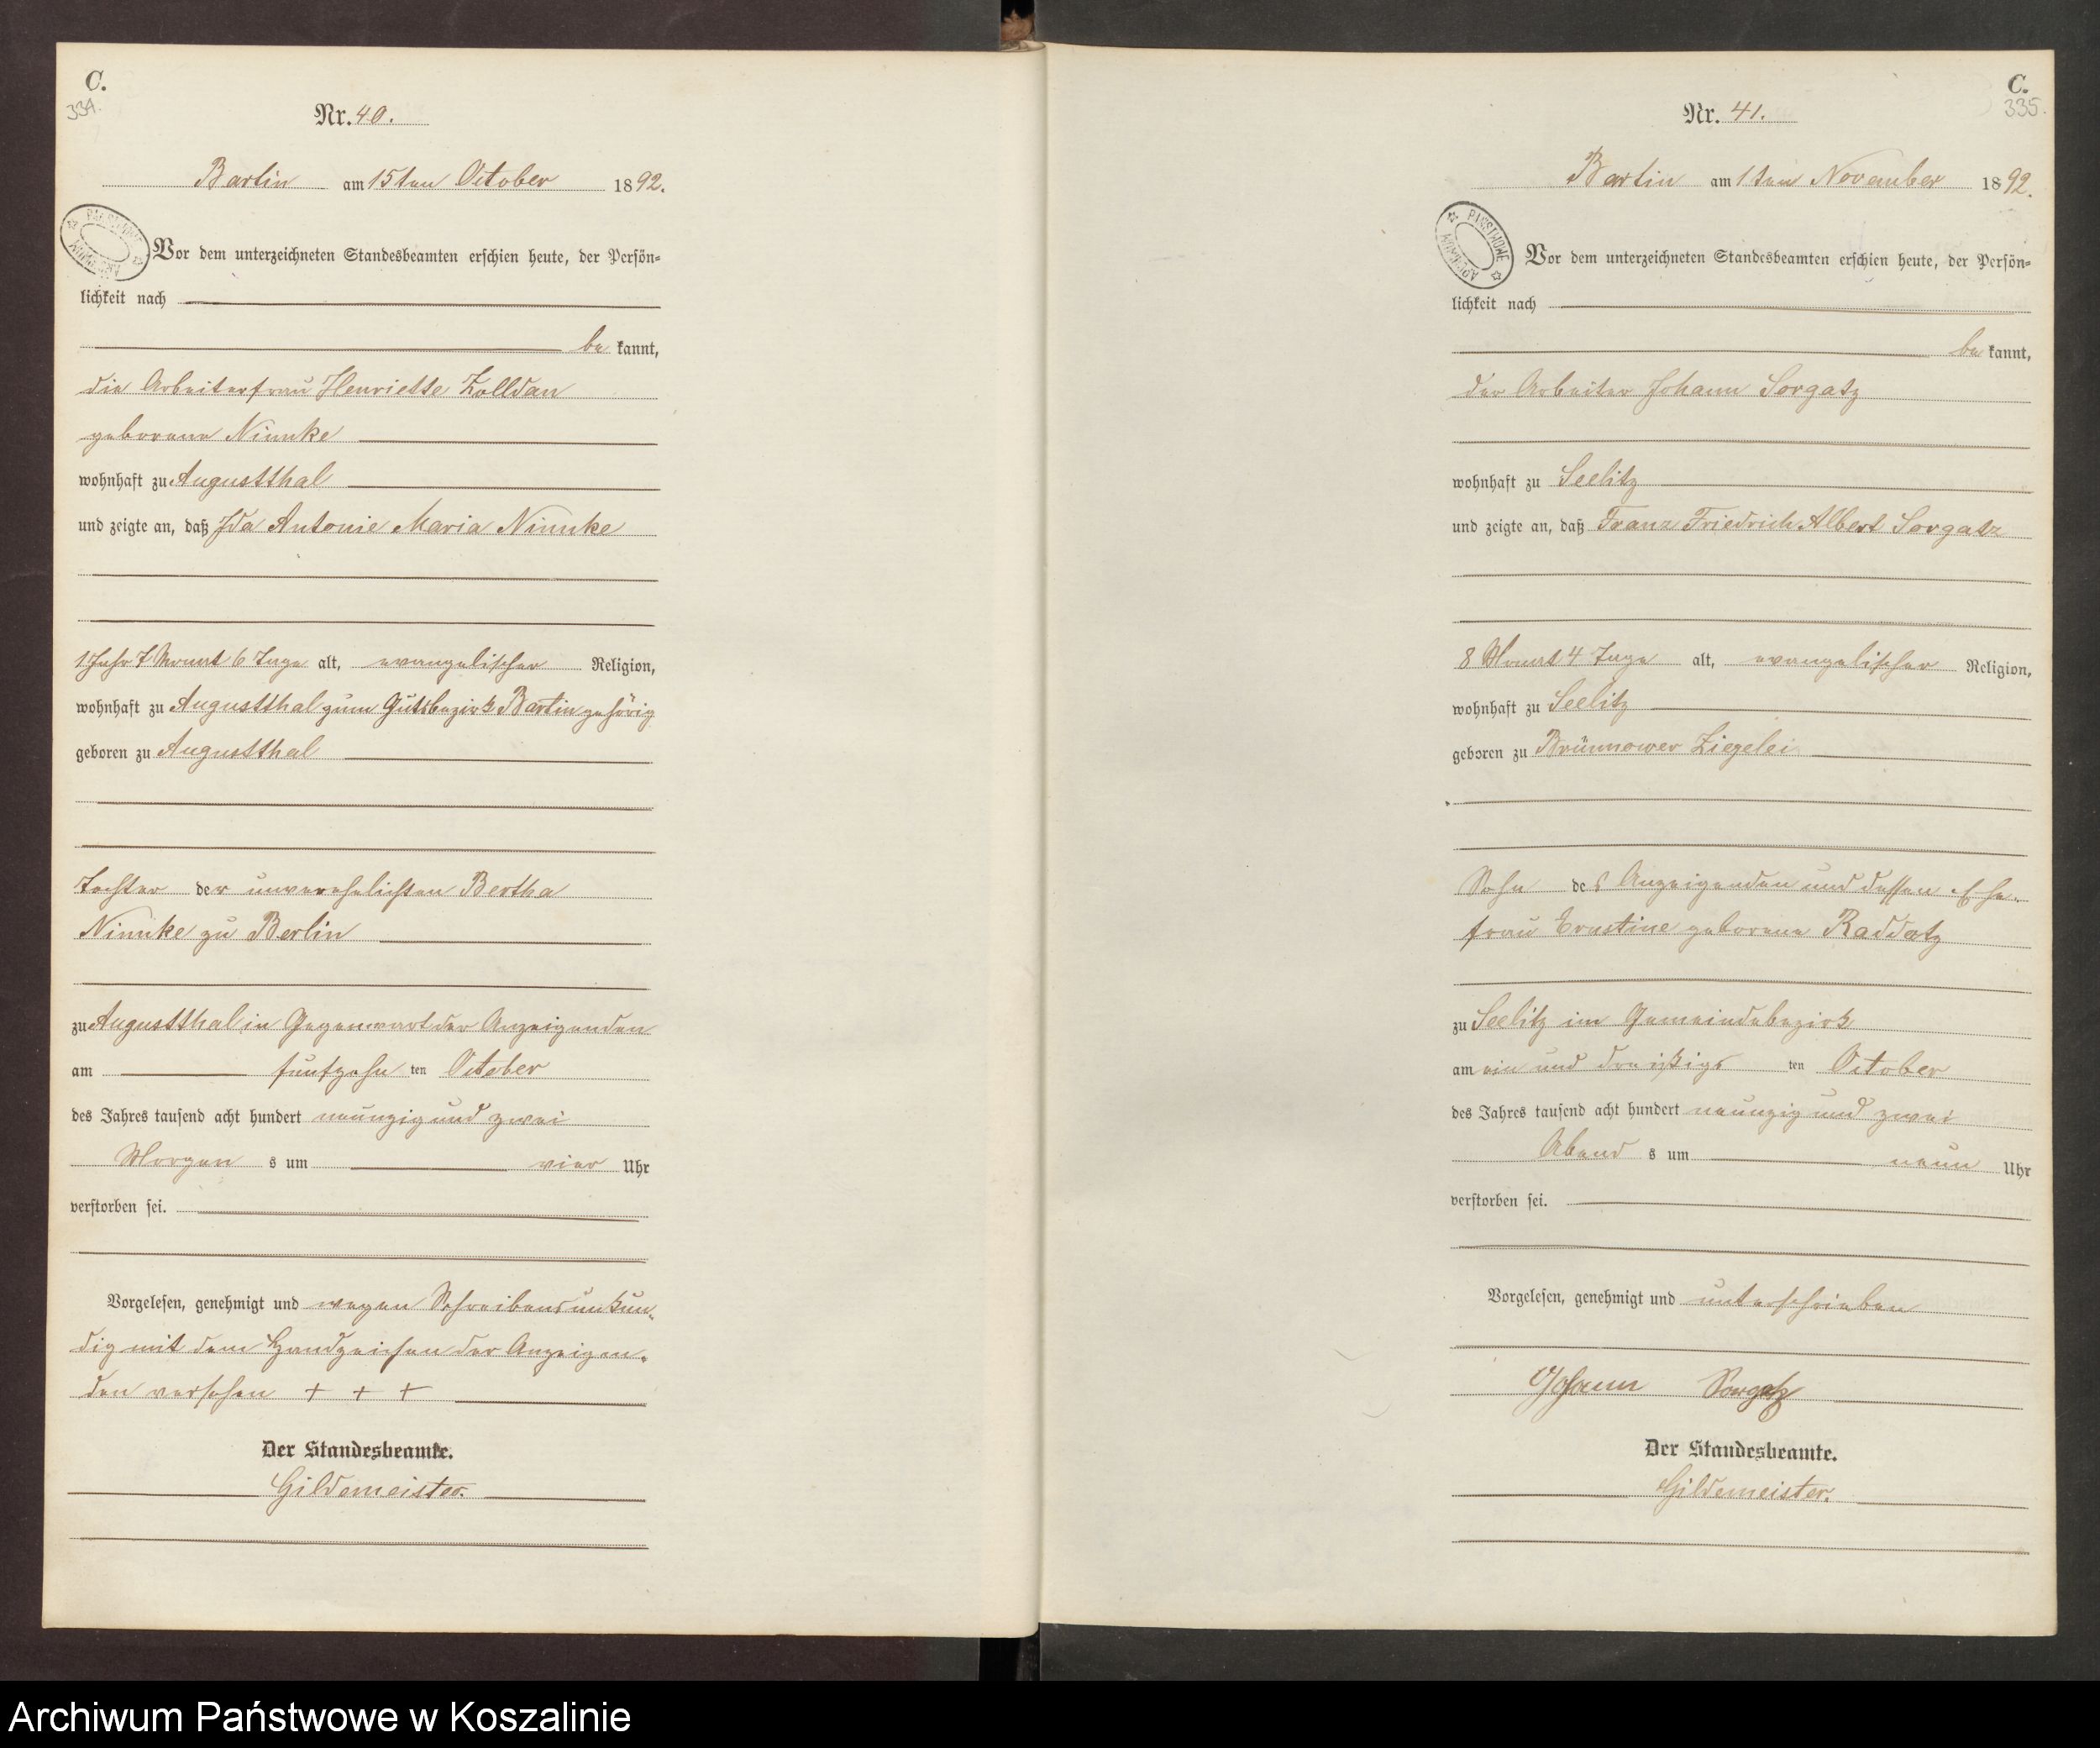 C.
334.
Nr. 40.
Bartin am 15ten October 1892.
Vor dem unterzeichneten Standesbeamten erschien heute, der Persön-
lichkeit nach
be kannt,
die Arbeiterfrau Henriette Zolldan
geborene Nimke
wohnhaft zu Augustthal
und zeigte an, daß Ida Antonie Maria Nimke
1 Jahr 7 Monat 6 Tage alt, evangelischer Religion,
wohnhaft zu Augustthal zum Gutsbezirk Bartin gehörig
geboren zu Augustthal
Tochter der unverehelichten Bertha
Nimke zu Berlin
zu Augustthal in Gegenwart der Anzeigenden
am fünfzehn ten October
des Jahres tausend acht hundert neunzig und zwei
Morgen s um vier Uhr
verstorben sei.
Vorgelesen, genehmigt und wegen Schreibensunkun-
dig mit dem Handzeichen der Anzeigen-
den versehen + + +
Der Standesbeamte.
Gildemeister.
C.
335.
Nr. 41.
Bartin am 1ten November 1892.
PAŃSTWOWE
Vor dem unterzeichneten Standesbeamten erschien heute, der Persön-
lichkeit nach
be kannt,
der Arbeiter Johann Sorgatz
wohnhaft zu Seelitz
und zeigte an, daß Franz Friedrich Albert Sorgatz
8 Monat 4 Tage alt, evangelischer Religion,
wohnhaft zu Seelitz
geboren zu Brünnower Ziegelei
Sohn des Anzeigenden und dessen Ehe-
frau Ernstine geborene Raddatz
zu Seelitz im Gemeindebezirk
am ein und dreißigs ten October
des Jahres tausend acht hundert neunzig und zwei
Abend s um neun Uhr
verstorben sei.
Vorgelesen, genehmigt und unterschrieben
Johann Sorgatz
Der Standesbeamte.
Gildemeister.
Archiwum Państwowe w Koszalinie